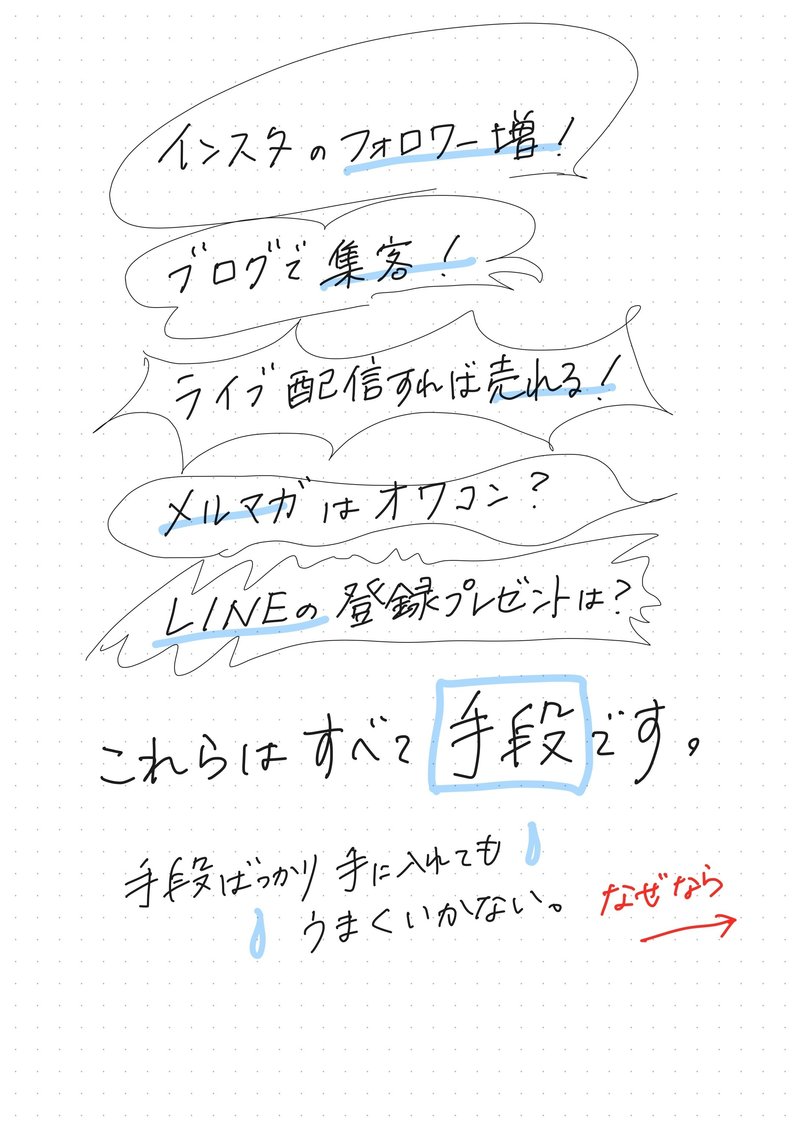 インスタのフォロワー増!
ブログで集客!
ライブ配信すれば売れる!
メルマガはオワコン?
LINEの登録プレゼントは?
これらはすべて手段です。
手段ばっかり手に入れても
うまくいかない。
なぜなら